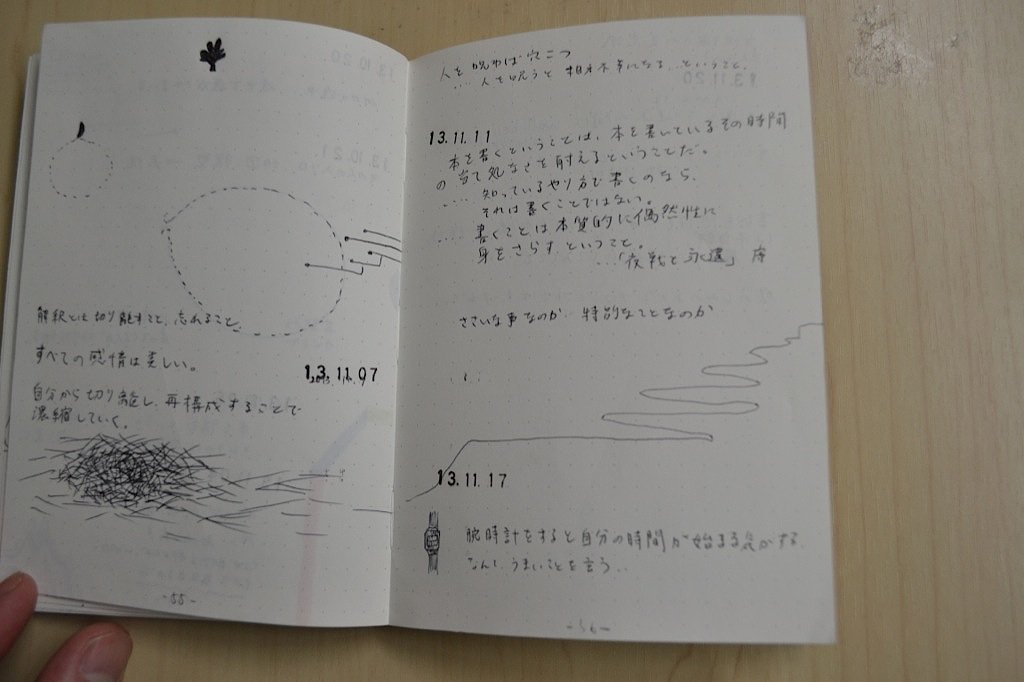 解釈とは切り離すこと、忘れること。
すべての感情は美しい。
13.11.07
自分から切り離し、再構成することで
濃縮していく。
-55-
人を呪わば穴二つ
…人を呪うと
13.11.11
本を書くということは、本を書いているその時間
の当て処なさを耐えるということだ。
……知っているやり方で書くのなら、
それは書くことではない。
……書くことは本質的に偶然性に
身をさらす、ということ。
…「夜戦と永遠」序
ささいな事なのか 特別なことなのか
13.11.17
腕時計をすると自分の時間が始まる気がする。
なんて、うまいことを言う…
-56-